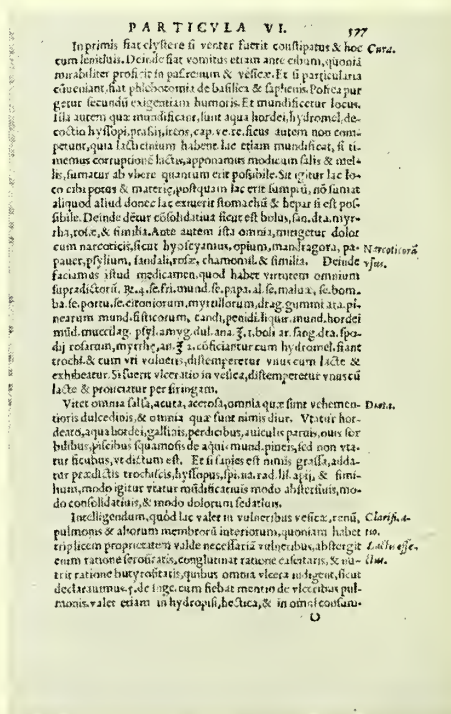 PARTICVLA VI. 577
In primis fiat clystere si venter fuerit constipatus & hoc Cura.
cum lenitiuis. Deinde fiat vomitus etiam ante cibum, quoniā
mirabiliter proficit in pas. renum & vesicæ. Et si particularia
cōueniant, fiat phlebotomia de basilica & saphenis. Postea pur
getur secundū exigentiam humoris. Et mundificetur locus.
Illa autem quæ mundificant, sunt aqua hordei, hydromel, de-
coctio hyssopi, prassij, ireos, cap. ve. re. ficus autem non com-
petunt, quia lacticinium habent. lac etiam mundificat, si ti-
memus corruptionē lactis, apponamus modicum salis & mel-
lis, sumatur ab vbere quantum erit possibile. Sit igitur lac lo-
co cibi potus & materię, postquam lac erit sumptū, nō sumat
aliquod aliud donec lac exiuerit stomachū & hepar si est pos-
sibile. Deinde dētur cōsolidatiua sicut est bolus, san. dra. myr-
rha, rosæ, & similia. Ante autem ista omnia, mitigetur dolor
cum narcoticis, sicut hyoscyamus, opium, mandragora, pa- Narcoticorū
pauer, psylium, sandali, rosæ, chamomil. & similia. Deinde vsus.
faciamus istud medicamen, quod habet virtutem omnium
supradictorū. ℞. 4. se. fri. mund. se. papa. al. se. maluæ, se. bom-
ba. se. portu. se. citoniorum, myrtillorum, drag. gummi ara. pi-
nearum mund. fisticorum, candi, penidi. liquir. mund. hordei
mūd. muccilag. psyl. amyg. dul. ana. ʒ. 1. boli ar. sang. dra. spo-
dij rosarum, myrrhę, an. ʒ 2. cōficiantur cum hydromel. fiant
trochi. & cum vti volueris, distemperetur vnus cum lacte &
exhibeatur. Si fuerit vlceratio in vesica, distemperetur vnus cū
lacte & proiiciatur per siringam.
Vitet omnia salsa, acuta, acetosa, omnia quæ sunt vehemen- Diæta.
tioris dulcedinis, & omnia quæ sunt nimis diur. Vtatur hor-
deato, aqua hordei, gallinis, perdicibus, auiculis paruis, ouis sor
bilibus, piscibus squamosis de aqui. mund. pineis, sed non vta-
tur ficubus, vt dictum est. Et si sanies est nimis grassa, adda-
tur prædictis trochiscis, hyssopus, spi. na. rad. lil. apij, & simi-
lium, modo igitur vtatur mūdificatiuis modo abstersiuis, mo-
do consolidatiuis, & modo dolorum sedatiuis.
Intelligendum, quòd lac valet in vulneribus vesicæ, renū, Clarifica-
pulmonis & aliorum membrorū interiorum, quoniam habet tio.
triplicem proprietatem valde necessariā vulneribus, abstergit Lactis effe-
enim ratione serositatis, conglutinat ratione caseitatis, & nu- ctus.
trit ratione butyrositatis, quibus omnia vlcera indigent, sicut
declarauimus. 5. de inge. cum fiebat mentio de vlceribus pul-
monis. valet etiam in hydropisi, hectica, & in omni consum-
O